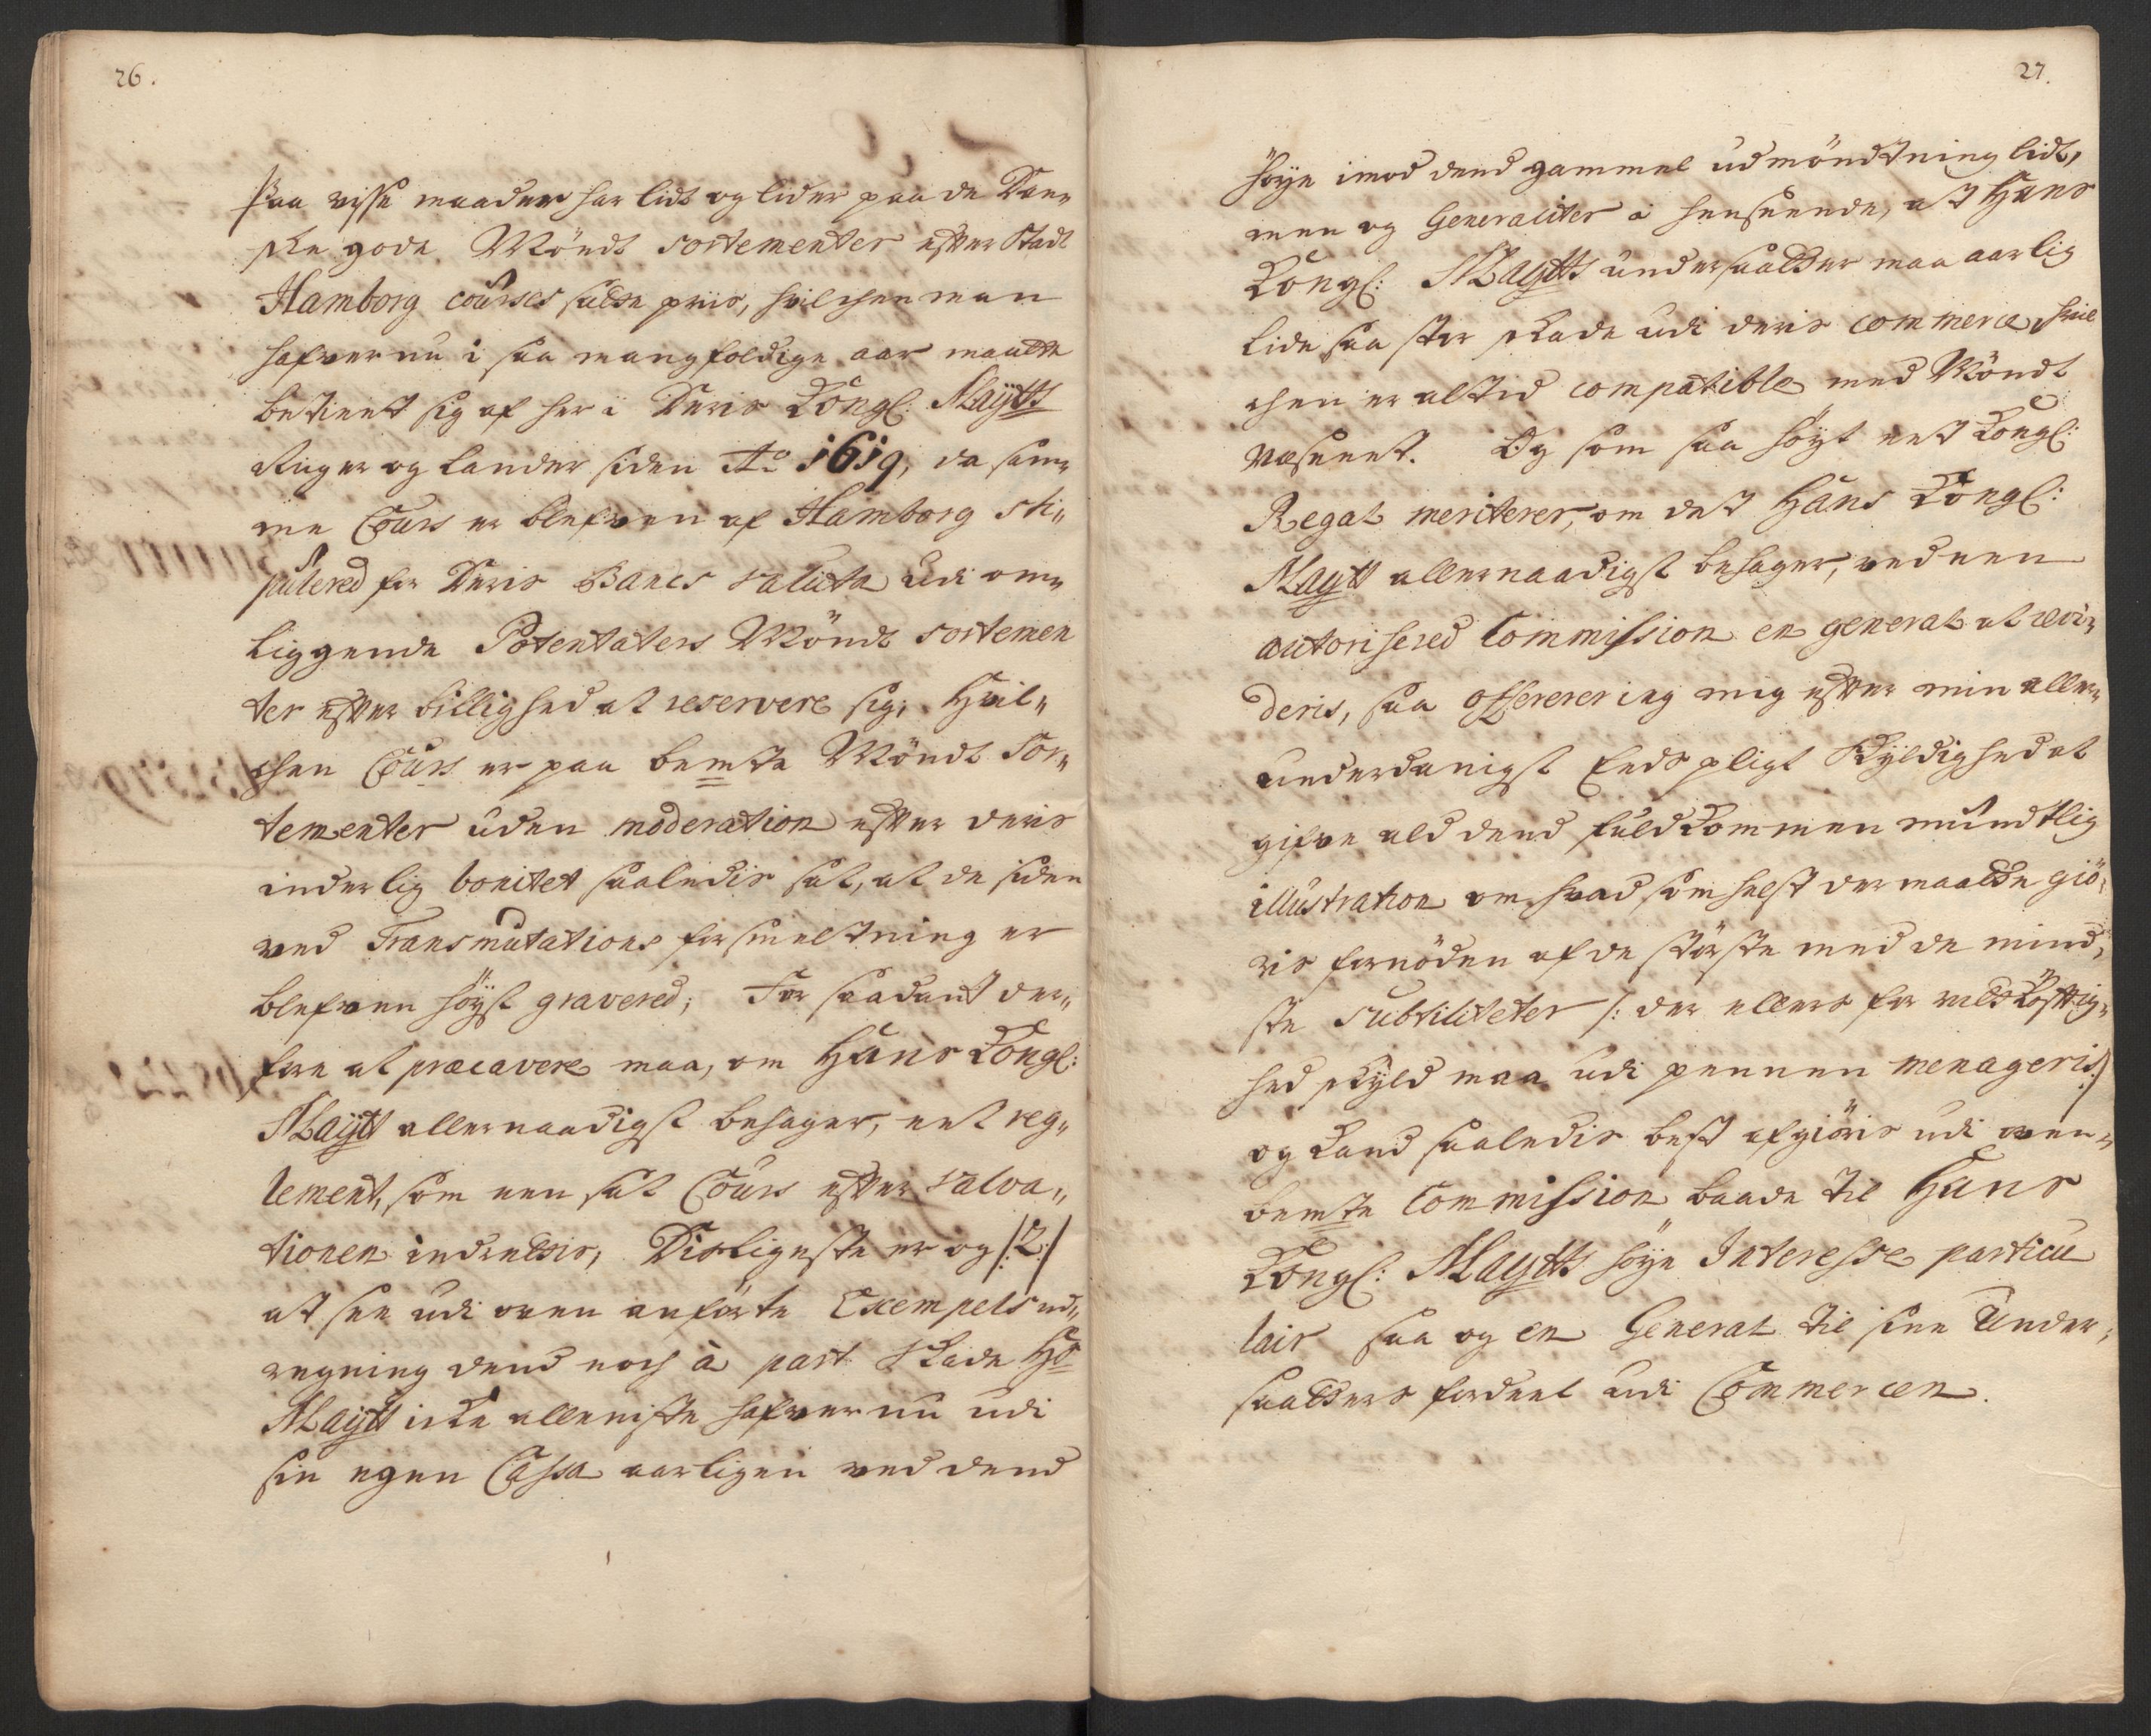 26.
Paa visse maader har lidt og lider paa de Dan„
ske gode Möndt sortementer efter Stadt
Hamborg courses satte priis, hvilchen man
hafver nu i saa mangfoldige aar maatte
betient sig af her i Deris Kongl: Maÿtts
Riiger og Lander siden Ao 1619, da sam„
me Cours er blefven af Hamborg sti„
pulered for Deris Bancs valuta udi om„
liggende Potentaters Möndt sortemen
ter efter billighed at reservere sig, Hvil„
chen Cours er paa bemte Möndt Sor„
tementer uden moderation efter deris
inderlig bonitet saaledis sat, at de siden
ved Transmutations forsmeltning er
blefven höyst gravered; For saadant der„
fore at præcavere maa, om Hans Kongl:
Maÿtt allernaadigst behager, eet reg„
lement, som een sat Cours efter valva„
tionen indrettis, Disligeste er og /:2:/
at see udi oven anförte Exempels ud„
regning dend noch à part skade Hs
Maÿtt icke alleniste hafver nu udi
sin egen Cassa aarligen ved dend
27.
höye imod dend gammel udmöndtning lidt,
men og Generaliter i henseende, at Hans
Kongl: Maÿtts undersaatter maa aarlig
lide saa stor skade udi deris commerce, hvil
chen er altid compatible med Möndt
væsenet. Og som saa höyt eet Kongl:
Regal meriterer, om det Hans Kongl:
Maytt allernaadigst behager, ved een
autorisered Commission en general at revi„
deris, saa offererer ieg mig efter min aller„
underdanigst Eeds pligt skyldighed at
gifve ald dend fuldkommen mundtlig
illustration om hvad som helst der maatte giö„
ris fornöden af de störste med de mind„
ste subtiliteter /: der ellers for vitlöftig„
hed skÿld maa udi pennen menageris :/
og kand saaledis best afgiöris udi oven„
bemte Commission baade til Hans
Kongl: Maÿtts höye Interesse particu
lair saa og en General til sine Under„
saatters fordeel udi Commercen.